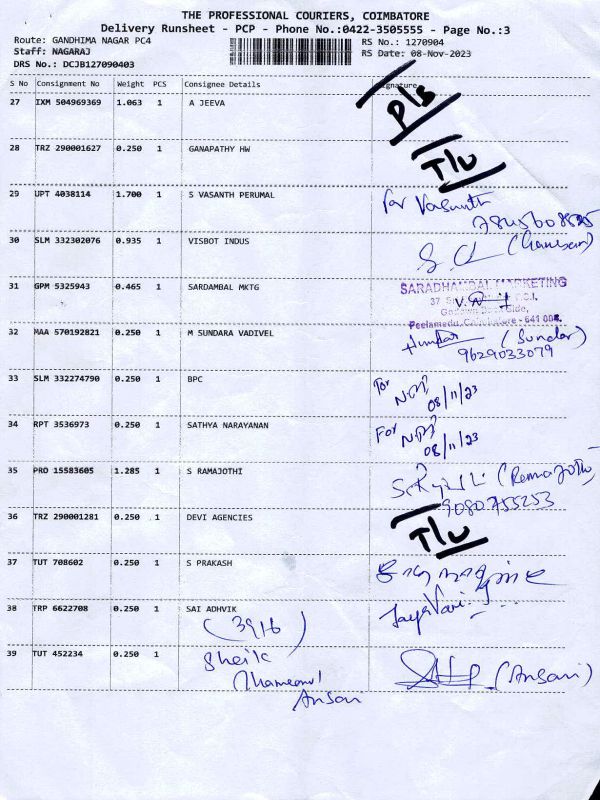 THE PROFESSIONAL COURIERS, COIMBATORE
Delivery Runsheet - PCP - Phone No.:0422-3505555 - Page No.:3
Route: GANDHIMA NAGAR PC4 RS No.: 1270904
Staff: NAGARAJ RS Date: 08-Nov-2023
DRS No.: DCJB127090403
S No Consignment No Weight PCS Consignee Details Signature
27 IXM 504969369 1.063 1 A JEEVA P/s
28 TRZ 290001627 0.250 1 GANAPATHY HW T/U
29 UPT 4038114 1.700 1 S VASANTH PERUMAL For Vasanth
30 SLM 332302076 0.935 1 VISBOT INDUS
31 GPM 5325943 0.465 1 SARDAMBAL MKTG SARADHAMBAL MARKETING
Peelamedu, Coimbatore - 641 004.
32 MAA 570192821 0.250 1 M SUNDARA VADIVEL (Sundar)
9629033079
33 SLM 332274790 0.250 1 BPC For
08/11/23
34 RPT 3536973 0.250 1 SATHYA NARAYANAN For
08/11/23
35 PRO 15583605 1.285 1 S RAMAJOTHI
9080755253
36 TRZ 290001281 0.250 1 DEVI AGENCIES T/U
37 TUT 708602 0.250 1 S PRAKASH
38 TRP 6622708 0.250 1 SAI ADHVIK
(3916)
39 TUT 452234 0.250 1 Sheik (Ansari)
Ansari